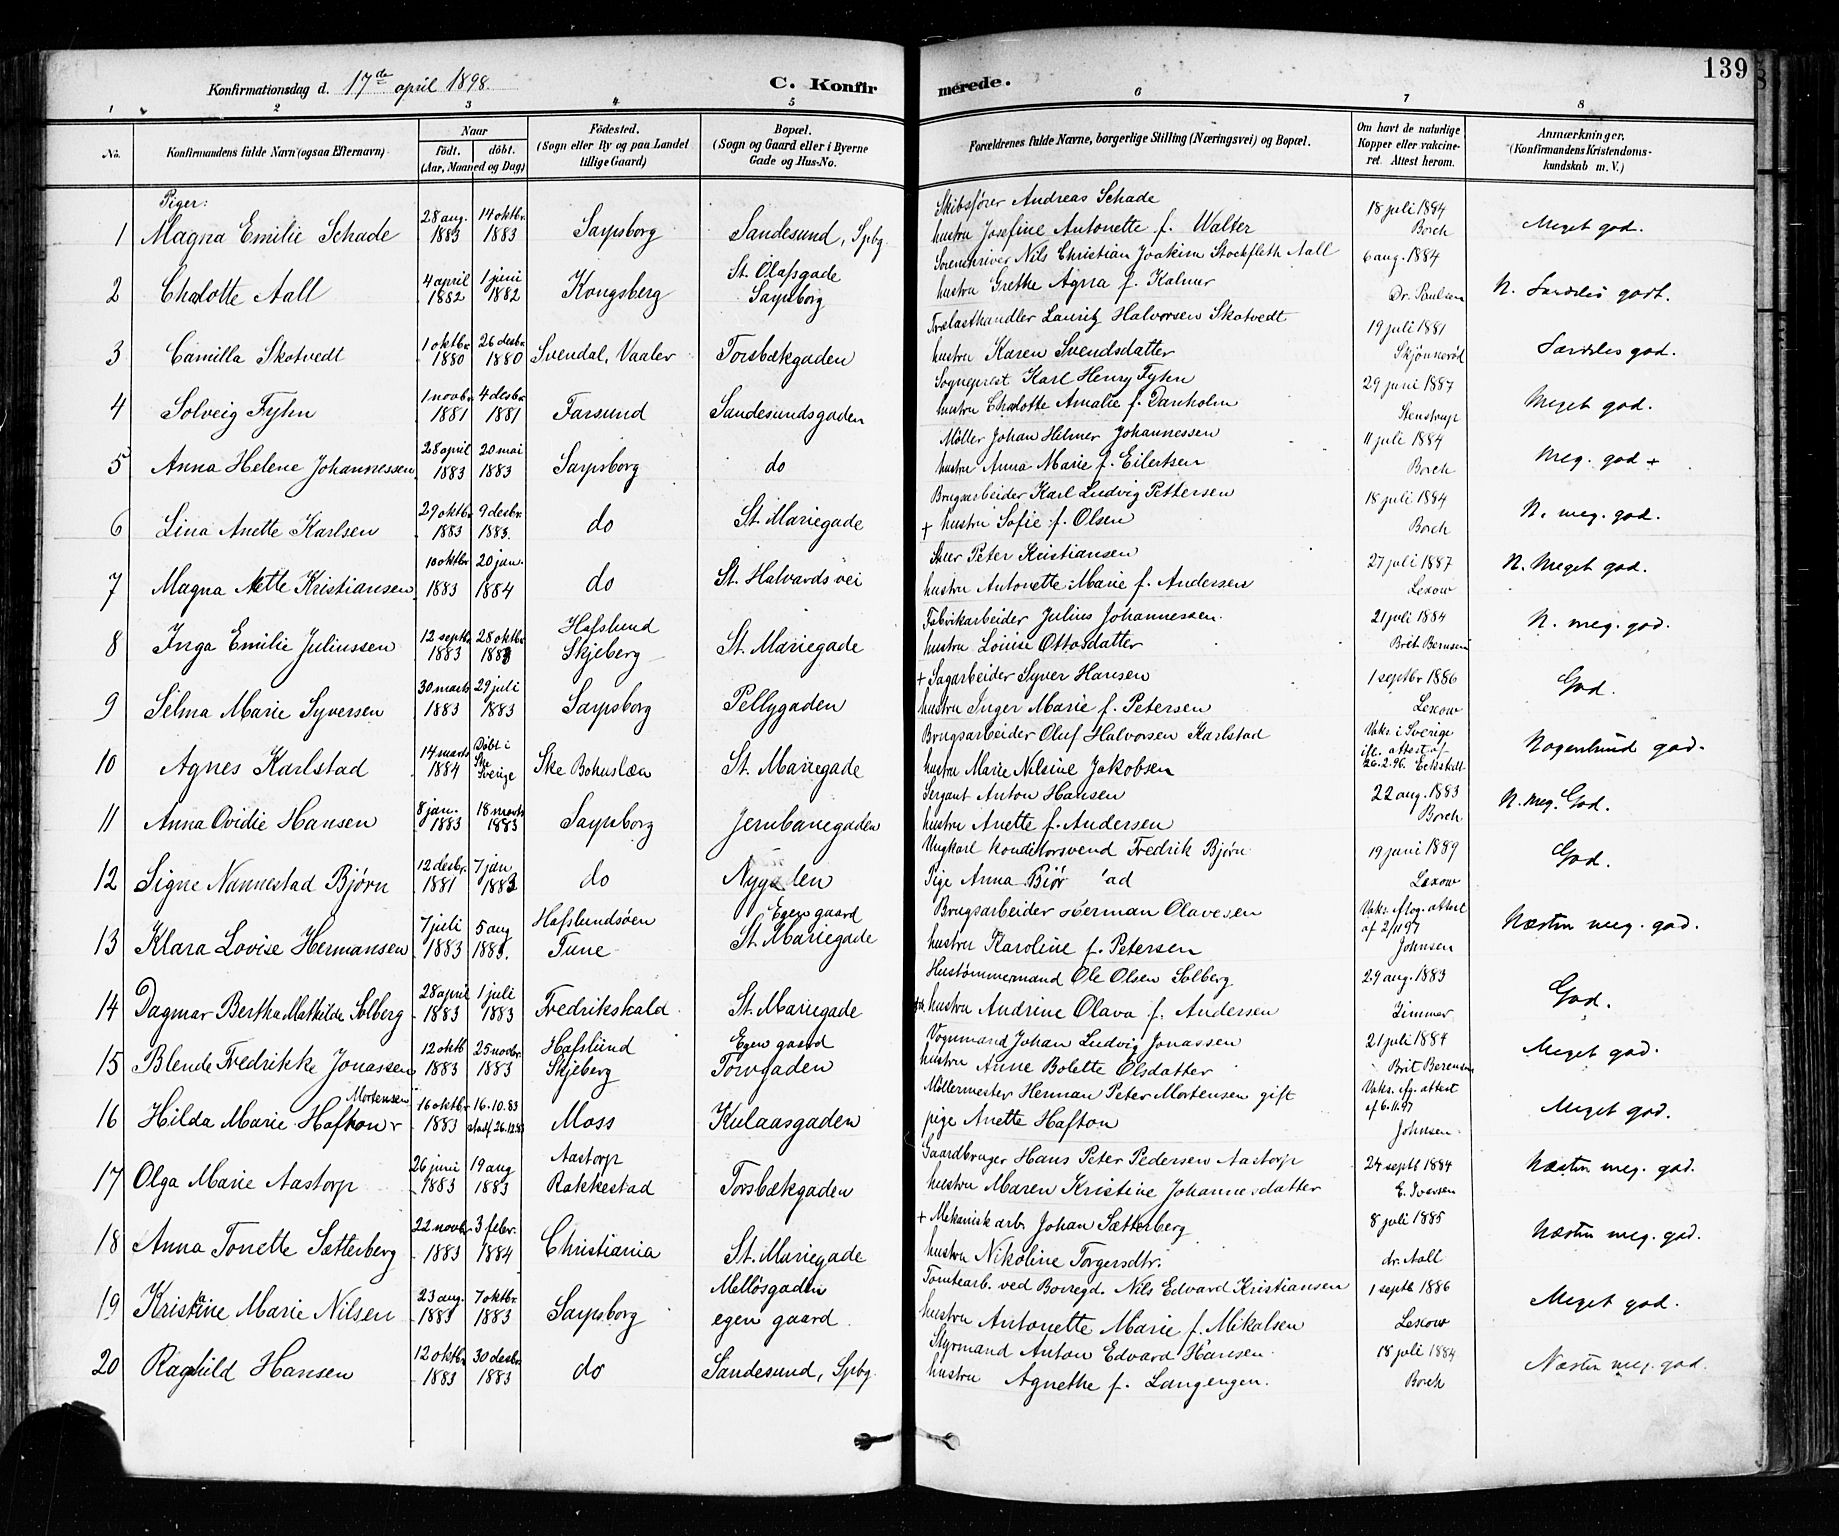 139
Konfirmationsdag d. 17de april 1898. C. Konfirmerede.
1 2 3 4 5 6 7 8
No. Konfirmandens fulde Navn (ogsaa Efternavn). Naar født. døbt. (Aar, Maaned og Dag) Fødested. (Sogn eller By og paa Landet tillige Gaard) Bopæl. (Sogn og Gaard eller i Byerne Gade og Hus-No. Forældrenes fulde Navne, borgerlige Stilling (Næringsvei) og Bopæl. Om havt de naturlige Kopper eller vakcineret. Attest herom. Anmærkninger. (Konfirmandens Kristendomskundskab m. V.)
Piger:
1 Magna Emilie Schade 28 aug. 1883 14 oktbr. 1883 Sarpsborg Sandesund, Spbg. Skibsfører Andreas Schade hustru Josefine Antonette f. Walter 18 juli 1884 Borch Meget god.
2 Charlotte Aall 4 april 1882 1 juni 1882 Kongsberg St. Olafsgade Sarpsborg Sorenskriver Nils Christian Joakim Stockfleth Aall hustru Grethe Agna f. Kalmer 6 aug. 1884 Dr. Paulsen N. Særdeles godt.
3 Camilla Skotvedt 1 oktbr. 1880 26 desbr. 1880 Svendal, Vaaler Torsbækgaden Trælasthandler Lauritz Halvorsen Skotvedt hustru Karen Svendsdatter 19 juli 1881 Skjønnerød Særdeles god.
4 Solveig Fyhn 1 novbr. 1881 4 desbr. 1881 Farsund Sandesundsgaden Sogneprest Karl Henry Fyhn hustru Charlotte Amalie f. Danholm 29 juni 1887 Stenstrup Meget god.
5 Anna Helene Johannessen 28 april 1883 20 mai 1883 Sarpsborg do Møller Johan Helmer Johannessen hustru Anna Marie f. Eilertsen 11 juli 1884 Borch Meg. god +
6 Lina Anette Karlsen 29 oktbr. 1883 9 desbr. 1883. do St. Mariegade Brugsarbeider Karl Ludvig Pettersen + hustru Sofie f. Olsen 18 juli 1884 Borch N. meg. god.
7 Magna Nette Kristiansen 10 oktbr 1883 20 jan. 1884 do St. Halvards vei Peter Kristiansen hustru Antonette Marie f. Andersen 27 juli 1887 Lexow N. Meget god.
8 Inga Emilie Juliussen 12 septbr 1883 28 oktbr. 1883 Hafslund Skjeberg St. Mariegade Fabrikarbeider Julius Johannessen. hustru Louise Ottosdatter 21 juli 1884 Brit Bernsen N. meg. god.
9 Selma Marie Syversen 30 marts 1883 29 juli 1883 Sarpsborg Pellygaden + Sagarbeider Syver Hansen hustru Inger Marie f. Petersen 1 septbr 1886 Lexow God.
10 Agnes Karlstad 14 marts 1884 Døbt i Ske Sverige Ske Bohuslæn St. Mariegade Brugsarbeider Oluf Halvorsen Karlstad hustru Marie Nilsine Jakobsen Vaks i Sverige ifl. attest af 26.2.96. Eckstedt Nogenlund god.
11 Anna Ovidie Hansen 8 jan. 1883 18 marts 1883 Sarpsborg Jernbanegaden Sergant Anton Hansen hustru Anette f. Andersen 22 aug. 1883 Borch N. meg. God.
12 Signe Nannestad Bjørn 12 desbr. 1881 7 jan 1883 do Nygaden Ungkarl konditorsvend Fredrik Bjørn Pige Anna 19 juni 1889 Lexow God.
13 Klara Lovise Hermansen 7 juli 1883 5 aug 1883. Hafslundsøen Tune Egen gaard St. Mariegade Brugsarbeider Herman Olavesen hustru Karoline f. Petersen Vaks. flog. attest af 2/11 97 Johnsen Næsten meg. god.
14 Dagmar Bertha Mathilde Solberg 28 april 1883 1 juli 1883 Fredrikshald St. Mariegade Hustømmermand Ole Olsen Solberg hustru Andrine Olava f. Andersen 29 aug. 1883 Zimmer God.
15 Blende Fredrikke Jonassen 12 oktb 1883 25 novbr. 1883 Hafslund Skjeberg Egen gaard Torvgaden Vognmand Johan Ludvig Jonassen hustru Anne Bolette Olsdatter 21 juli 1884 Brit Berensen Meget god.
16 Hilda Marie Hafton Mortensen 16 oktbr 1883 16.10.83 stadf 26.12.83 Moss Kulaasgaden Møllermester Herman Peter Mortensen gift pige Anette Hafton Vaks. flg. attest af 6.11.97 Johnsen Meget god.
17 Olga Marie Aastorp 26 juni 1883 19 aug 1883 Aastorp Rakkestad Torsbækgaden Gaardbruger Hans Peter Pedersen Aastorp hustru Maren Kristine Johannesdatter 24 septb 1884 E. Iversen Næsten meg. god.
18 Anna Tonette Sætterberg 22 novbr 1883 3 febr. 1884 Christiania St. Mariegade + Mekanisk arb. Johan Sætterberg hustru Nikoline Torgersdtr. 8 juli 1885 dr. Aall Næsten meg. god.
19 Kristine Marie Nilsen 23 aug. 1883 7 oktbr. 1883 Sarpsborg Melløsgaden egen gaard. Tomtearb. ved Borregd. Nils Edvard Kristiansen hustru Antonette Marie f. Mikalsen 1 septb 1886 Lexow Meget god.
20 Raghild Hansen 12 oktbr. 1883 30 desbr. 1883 do Sandesund, Spbg. Styrmand Anton Edvard Hansen. hustru Agnethe f. Langengen. 18 juli 1884 Borch Næsten meg. god.